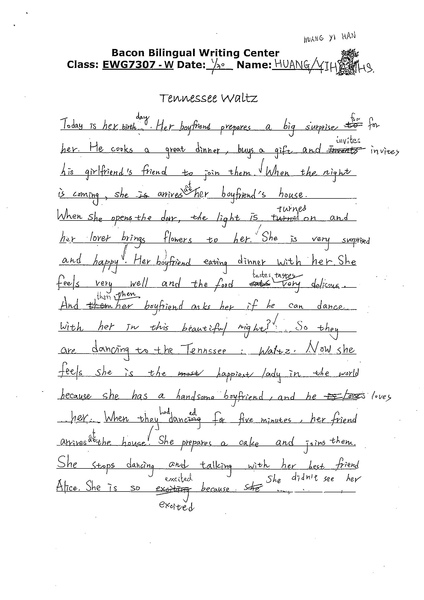 HUANG YI HAN
Bacon Bilingual Writing Center
Class: EWG7307 - W Date: 1/20 Name: HUANG/YIH HS.
Tennessee Waltz
day
Today is her birth. Her boyfriend prepares a big surprise to for for
her. He cooks a great dinner, buys a gift and invents invites invites
his girlfriend's friend to join them. When the night
is coming, she is arrives at her boyfriend's house.
When She opens the door, the light is turned turned on and
her lover brings flowers to her. She is very surprised
and happy. Her boyfriend eating dinner with her. She
feels very well and the food eats tastes tastes very delicous.
And them then then her boyfriend asks her if he can dance
with her in this beautiful night? So they
are dancing to the Tennssee : Waltz. Now she
feels she is the most happient lady in the world
because she has a handsome boyfriend, and he is loves
her. When they had dancing ed for five minutes, her friend
arrives at the house. She prepares a cake and joins them.
She stops dancing and talking with her best friend
Alice. She is so exciting excited because She She didn't see her
excited